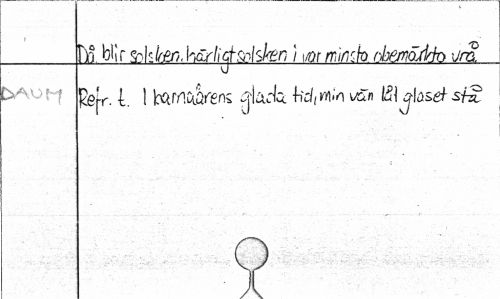 Då blir solsken, härligt solsken i var minsta obemärkta vrå.
DAUM Refr. t. I barnaårens glada tid, min vän låt glaset stå